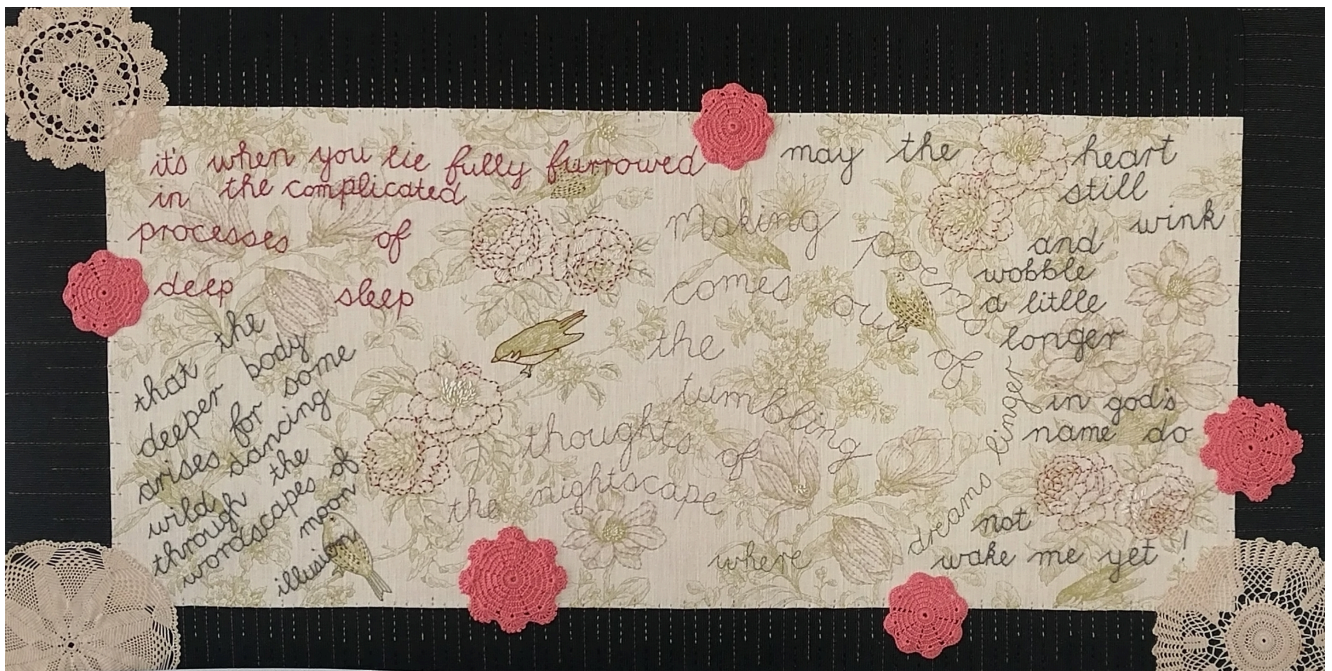 it's when you lie fully furrowed
in the complicated
processes of
deep sleep
that the
deeper body
arises for some
wild dancing
through the
wordscapes of
moon
illusion
Making
poems
comes out of
the
tumbling
thoughts of
the nightscape
where
dreams linger
may the heart
still
wink
and
wobble
a litlle
longer
in god's
name do
not
wake me yet !